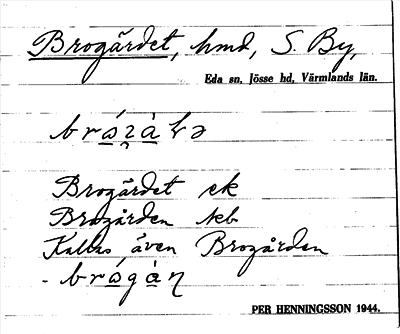 Brogärdet, hmd, S. By,
Eda sn, Jösse hd, Värmlands län.
Brogärdet ek
Brogården
Kallas även Brogården
PER HENNINGSSON 1944.